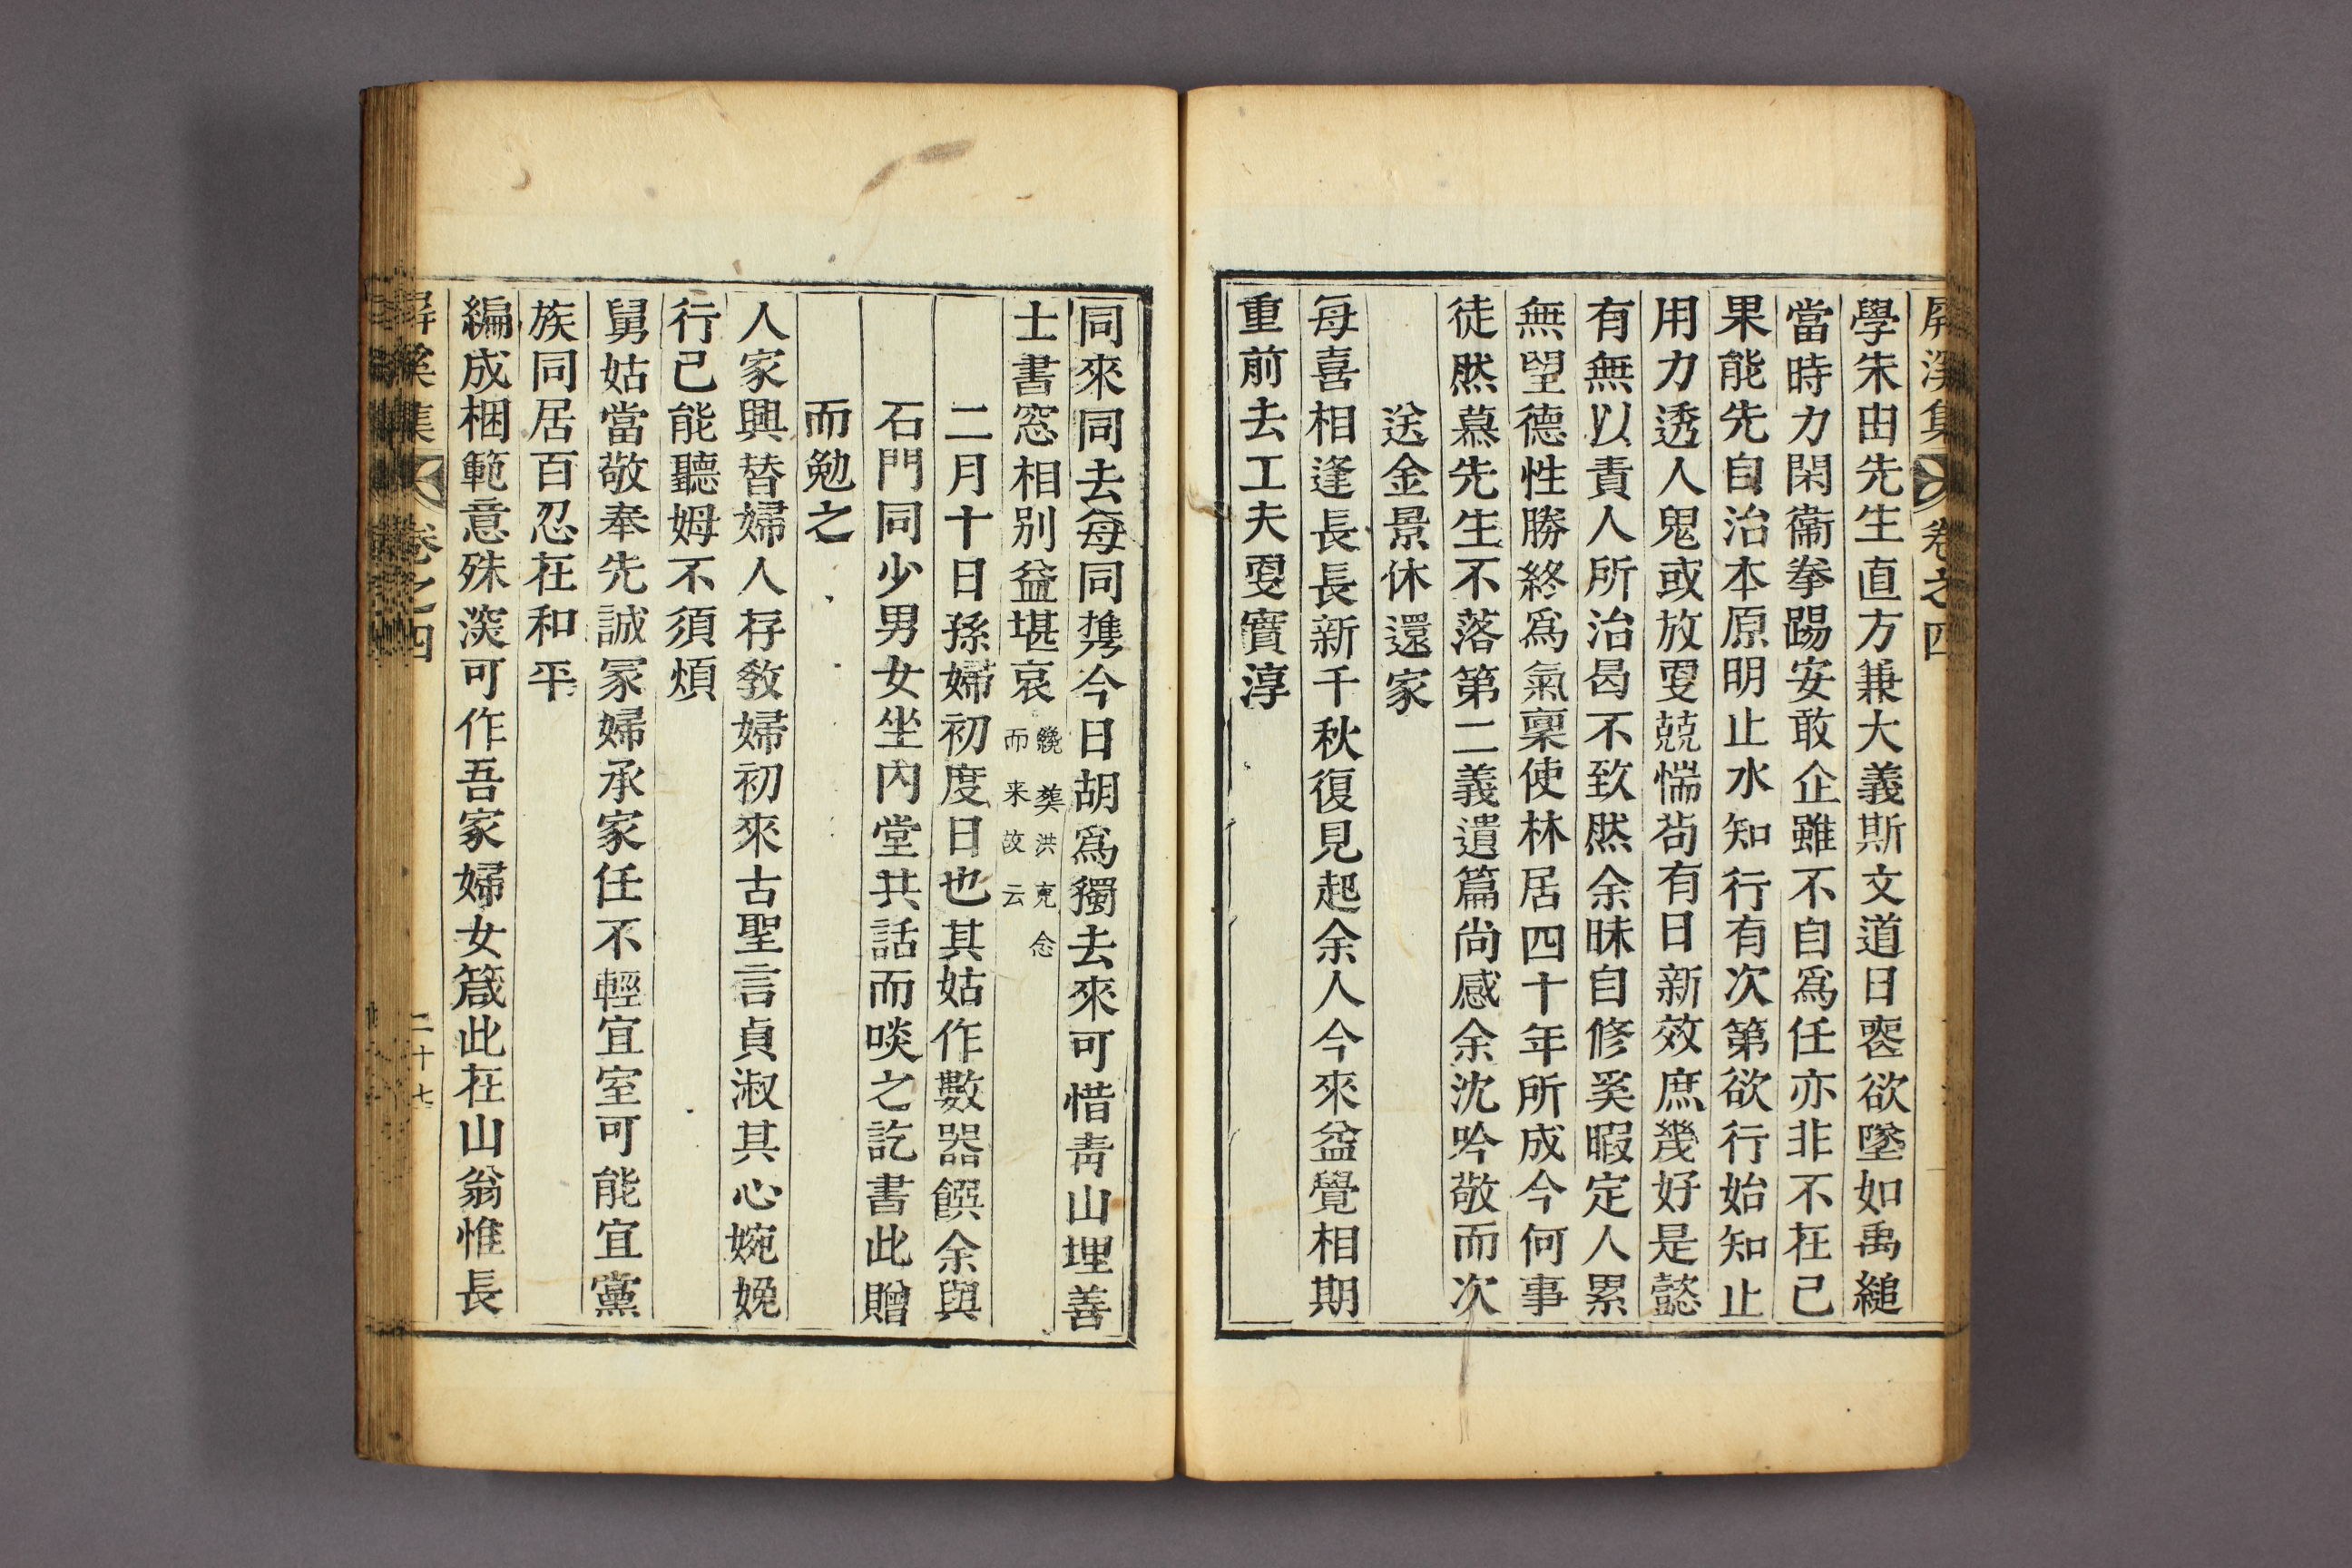 屛溪集 卷之四
學朱由先生直方兼大義斯文道日喪欲墜如禹縋
當時力閑衞拳踢安敢企雖不自爲任亦非不在己
果能先自治本原明止水知行有次第欲行始知止
用力透人鬼或放更兢惴苟有日新效庶幾好是懿
有無以責人所治曷不致然余昧自修奚暇定人累
無望德性勝終爲氣稟使林居四十年所成今何事
徒然慕先生不落第二義遺篇尚感余沈吟敬而次
送金景休還家
每喜相逢長長新千秋復見起余人今來益覺相期
重前去工夫更實淳
同來同去每同携今日胡爲獨去來可惜靑山埋善
士書窓相別益堪哀
纔葬洪克念
而来故云
二月十日孫婦初度日也其姑作數器饌余與
石門同少男女坐內堂共話而啖之訖書此贈
而勉之
人家興替婦人存敎婦初來古聖言貞淑其心婉娩
行己能聽姆不須煩
舅姑當敬奉先誠冢婦承家任不輕宜室可能宜黨
族同居百忍在和平
編成梱範意殊深可作吾家婦女箴此在山翁惟長
屛溪集 卷之四 二十七